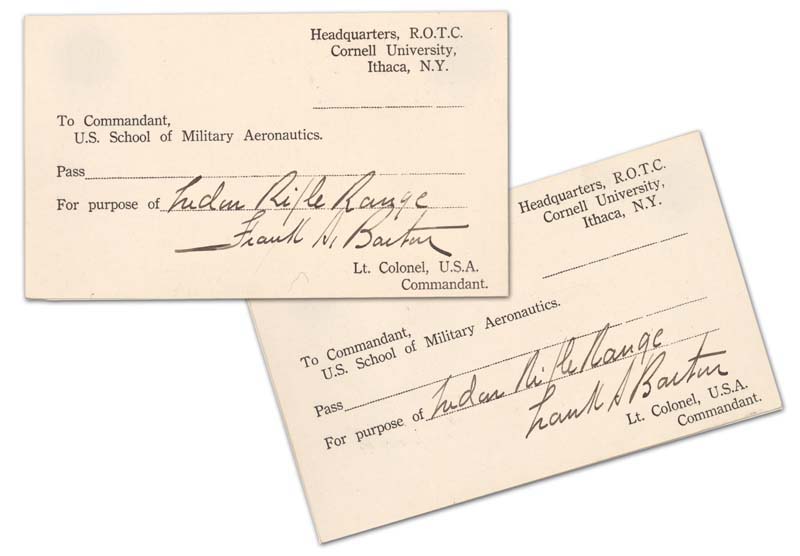 Headquarters, R.O.T.C.
Cornell University,
Ithaca, N.Y.
To Commandant,
U.S. School of Military Aeronautics.
Pass
For purpose of Indoor Rifle Range
Frank A. Barton
Lt. Colonel, U.S.A.
Commandant.
Headquarters, R.O.T.C.
Cornell University,
Ithaca, N.Y.
To Commandant,
U.S. School of Military Aeronautics.
Pass
For purpose of Indoor Rifle Range
Frank A Barton
Lt. Colonel, U.S.A.
Commandant.